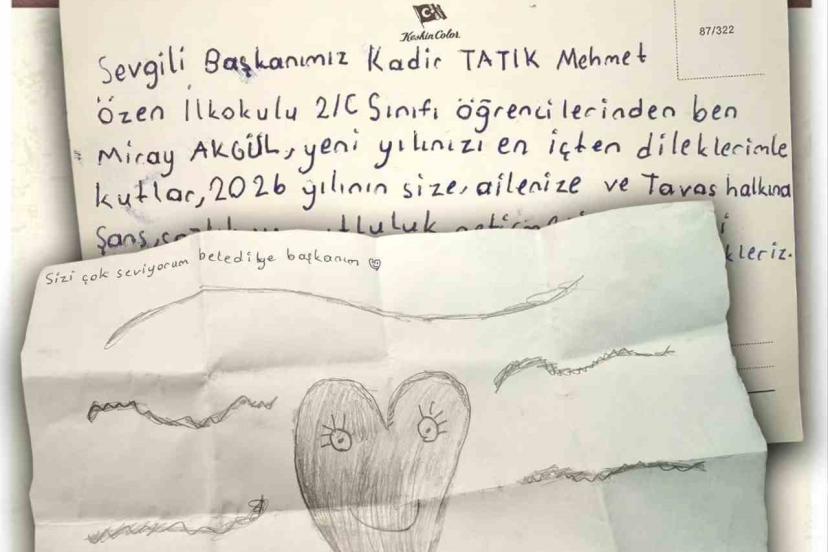 Keskin Color
87/322
Sevgili Başkanımız Kadir TATIK Mehmet
Özen İlkokulu 2/C Sınıfı öğrencilerinden ben
Miray AKGÜL, yeni yılınızı en içten dileklerimle
kutlar, 2026 yılının size, ailenize ve Tavas halkına
Şans,
kleriz.
Sizi çok seviyorum belediye başkanım